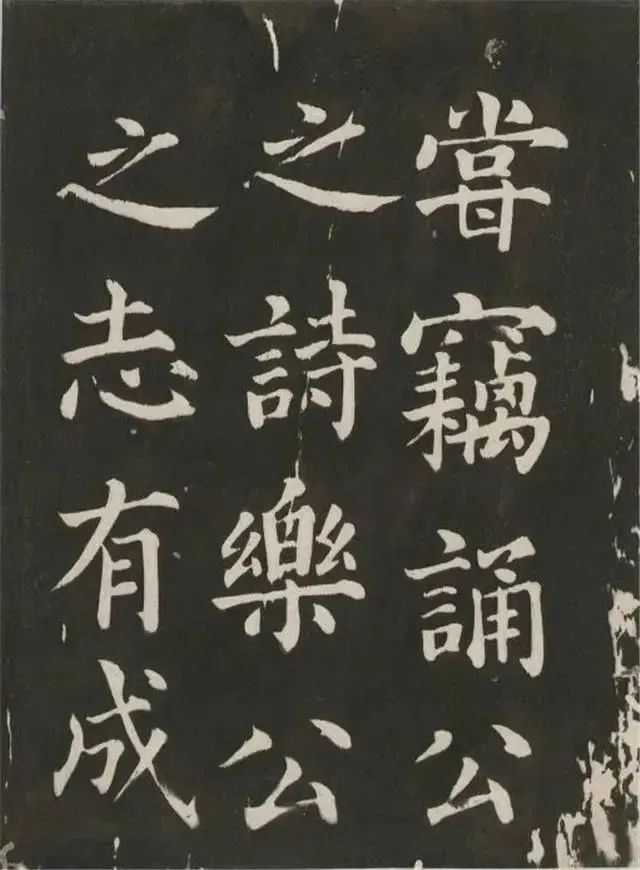 甞竊誦公
之詩樂公
之志有成